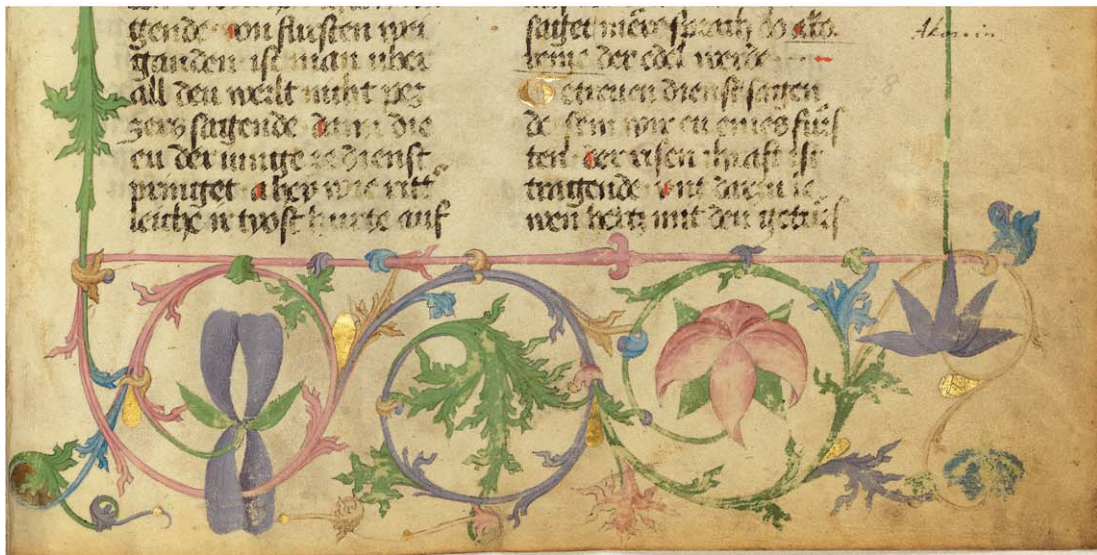 gende von fursten wei
ganden ist man uber
all den werlt niht pez
zers sagende dann die
eu der iunge ze dienst
pringet aber wie ritt
leiche ir tyost hurte auf
saget mære sprach do ako
reine der edel werde
Getreuen dienst sagen
de sein wir eu eines furs
ten der risen chraft ist
tragende vnt darzu le
wen hertz mit den getürs
Akorin